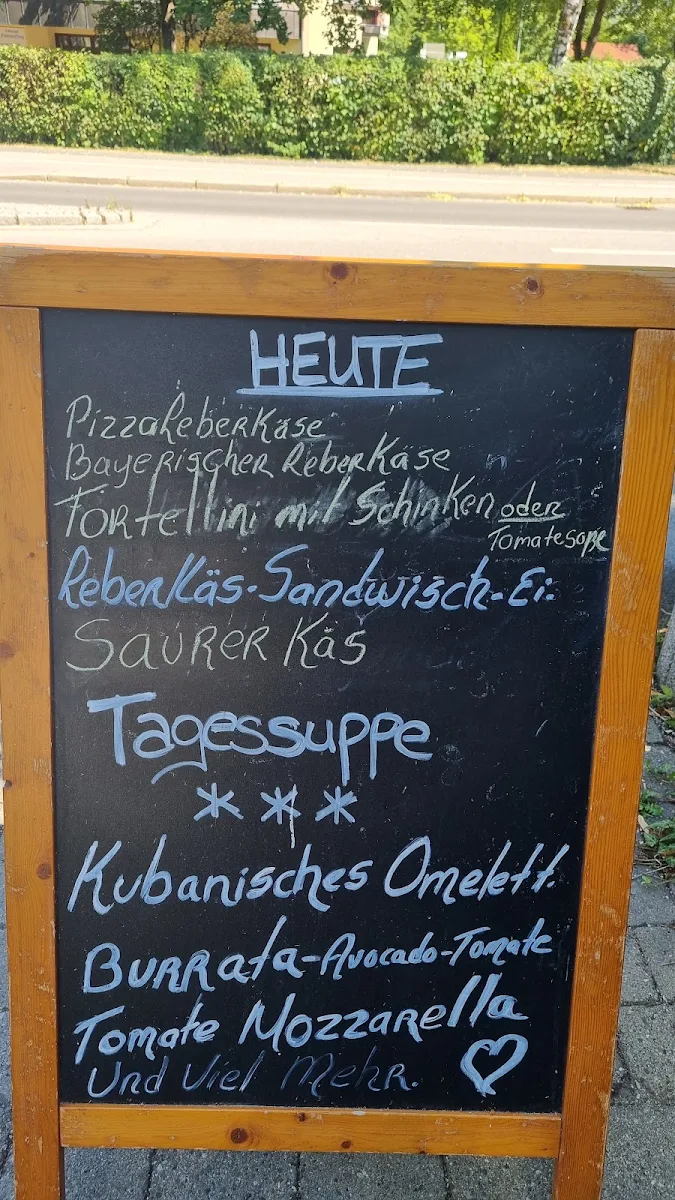 HEUTE
PizzaLeberKäse
Bayerischer LeberKäse
Tortellini mit Schinken oder
Tomatesoße
LeberKäs-Sandwisch-Ei.
SAURER Käs
Tagessuppe
***
Kubanisches Omelett.
BURRata-Avocado-Tomate
Tomate Mozzarella
Und Viel Mehr. ♡